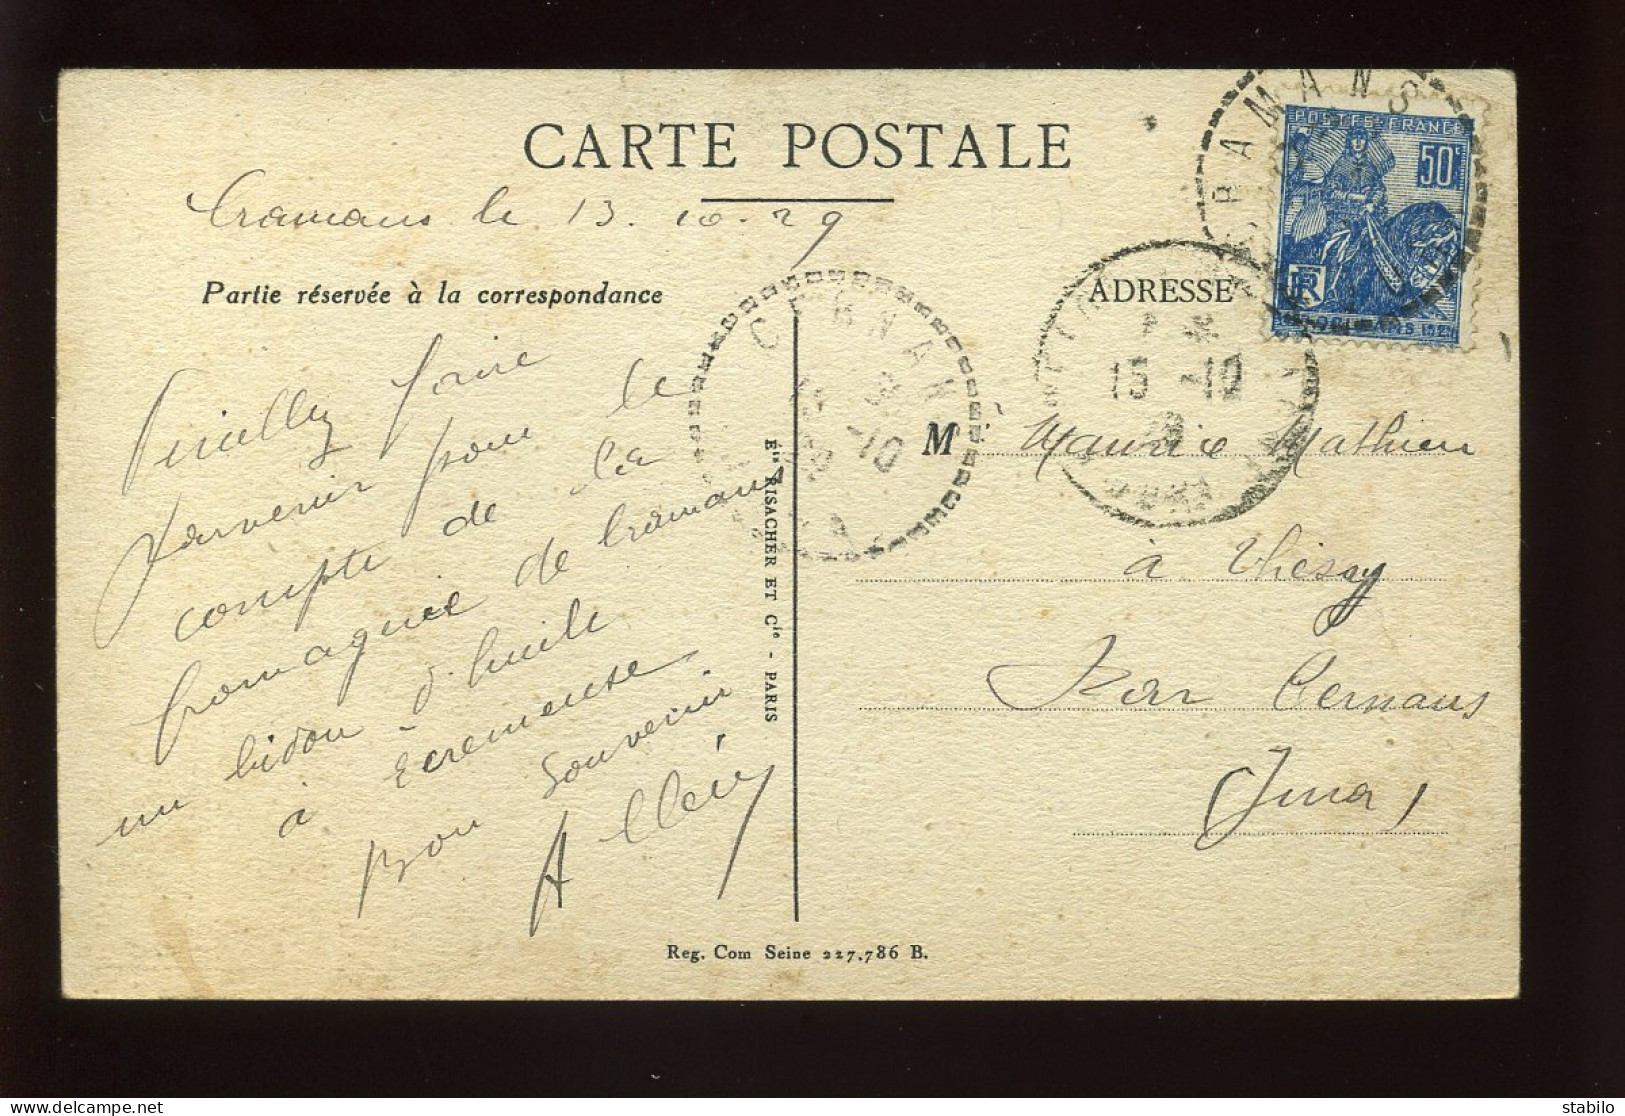 CARTE POSTALE
Cramans le 13.10.29
Partie réservée à la correspondance
ADRESSE
Veuillez faire
parvenir pour le
compte de la
fromagerie de Cramans
un bidon d'huile
à écremeuse
Bon Souvenir
A
M Maurice Mathieu
à
Par Cernans
(Jura)
Éts RISACHER ET Cie - PARIS
Reg. Com Seine 227.786 B.
CRAMANS
POSTES FRANCE
50c
RF
CERNAN
13 -10
15 -10
29
JURA
delcampe.net